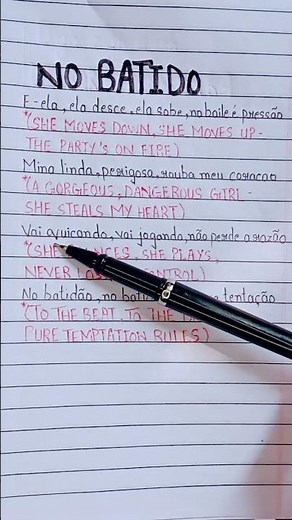 NO BATIDO
E-ela, ela desce, ela sobe, no baile é pressão
*(SHE MOVES DOWN, SHE MOVES UP-
THE PARTY'S ON FIRE)
Mina linda, perigosa, rouba meu coracao
*(A GORGEOUS, DANGEROUS GIRL-
SHE STEALS MY HEART)
Vai quicando, vai jogando, não perde a razão
*(SHE DANCES, SHE PLAYS,
NEVER CONTROL)
No batidão, no tentação
*(TO THE BEAT, TO THE
PURE TEMPTATION RULES)